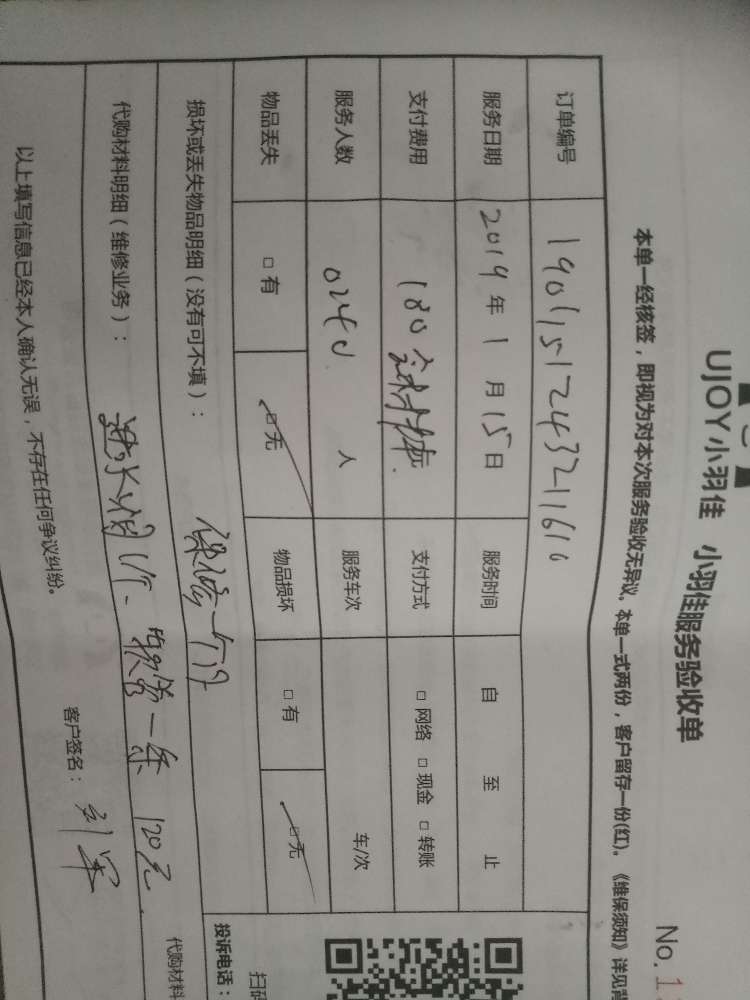 UJOY小羽佳 小羽佳服务验收单
No.1
本单一经核签，即视为对本次服务验收无异议。本单一式两份，客户留存一份(红)。《维保须知》详见背
订单编号 190115124321161
服务日期 2019年1月15日 服务时间 自 至 止
支付费用 180 支付方式 □网络 □现金 □转账
服务人数 人 服务车次 车/次
物品丢失 □有 □无 物品损坏 □有 □无
损坏或丢失物品明细（没有可不填）： 保修一个月
投诉电话： 扫码
代购材料明细（维修业务）： 进水阀1个、软管一条 120元
代购材料
以上填写信息已经本人确认无误，不存在任何争议纠纷。 客户签名：